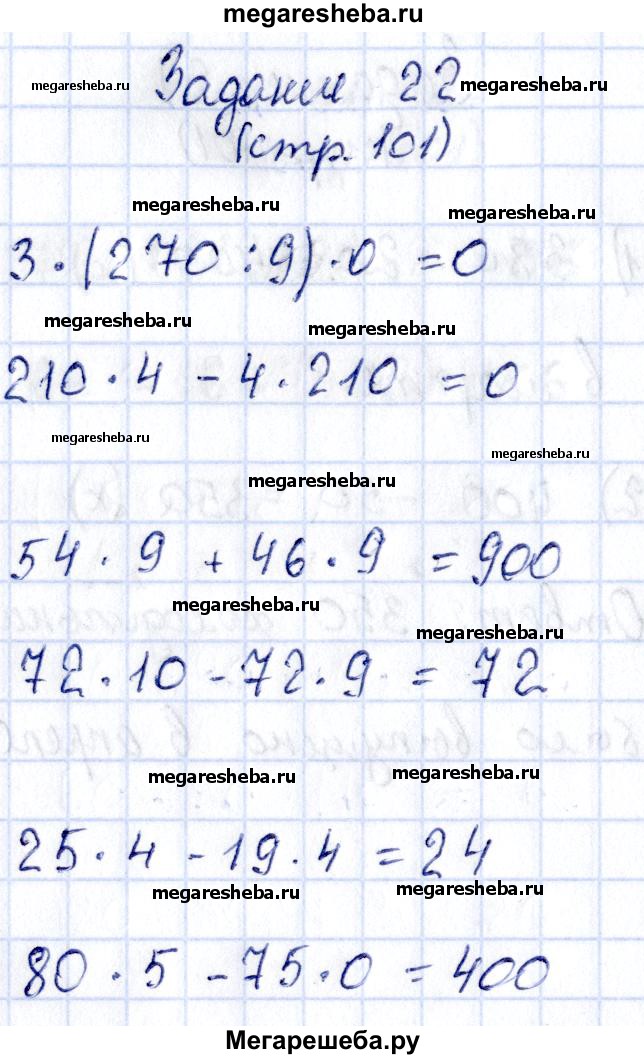 megaresheba.ru
megaresheba.ru Задание 22 megaresheba.ru
(стр. 101)
megaresheba.ru megaresheba.ru
3·(270:9)·0 =0
megaresheba.ru megaresheba.ru
210·4 - 4·210 =0
megaresheba.ru megaresheba.ru
megaresheba.ru
54·9 + 46·9 =900
megaresheba.ru megaresheba.ru
72·10 -72·9 = 72
megaresheba.ru megaresheba.ru
25·4 -19·4 =24
megaresheba.ru megaresheba.ru
80·5 -75·0 =400
Мегарешеба.ру